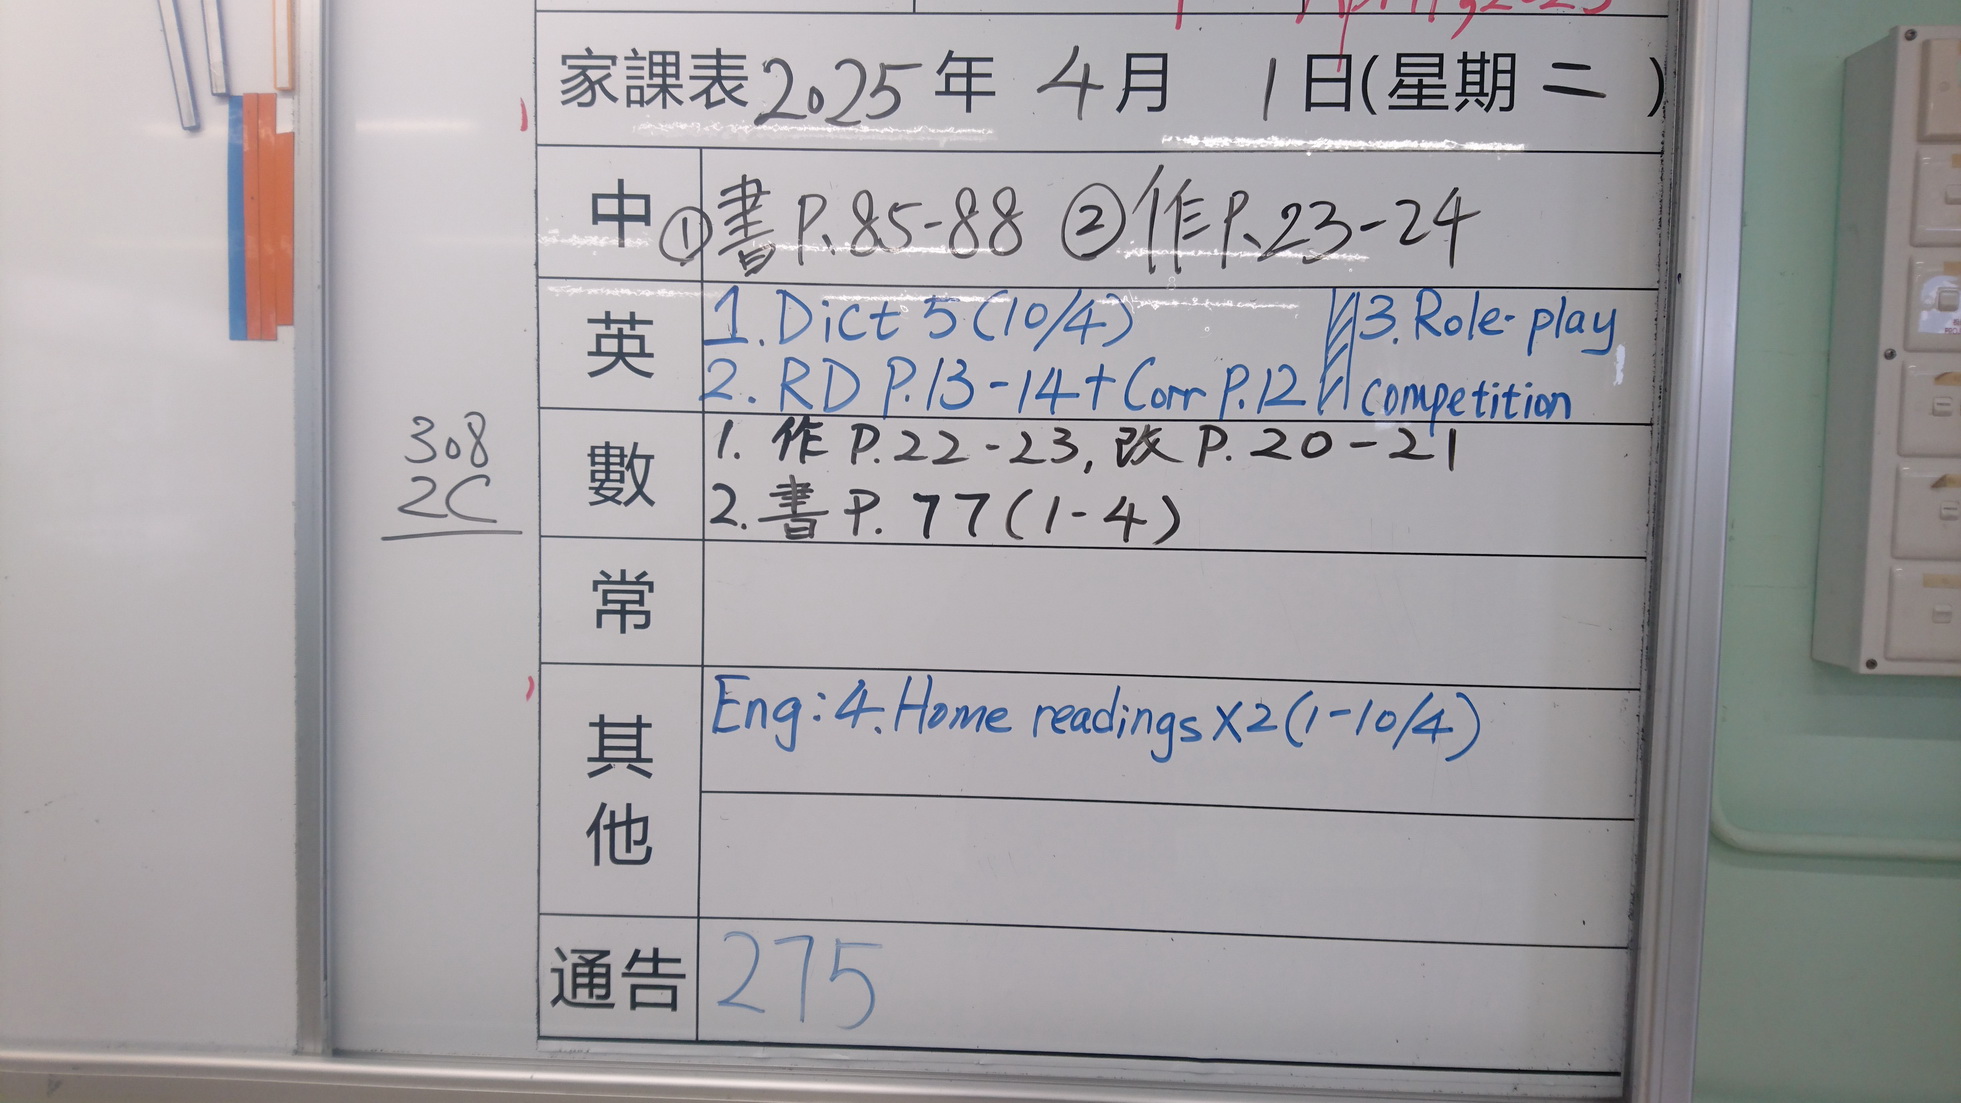 April 1, 2025
家課表2025年 4月 1日(星期二)
中 ①書P.85-88 ②作P.23-24
英
1. Dict 5 (10/4)
2. RD P.13-14+Corr P.12
3. Role-play
competition
數
1. 作P.22-23, 改P.20-21
2. 書P.77(1-4)
308
2C
常
其他
Eng: 4. Home readings X2 (1-10/4)
通告 275